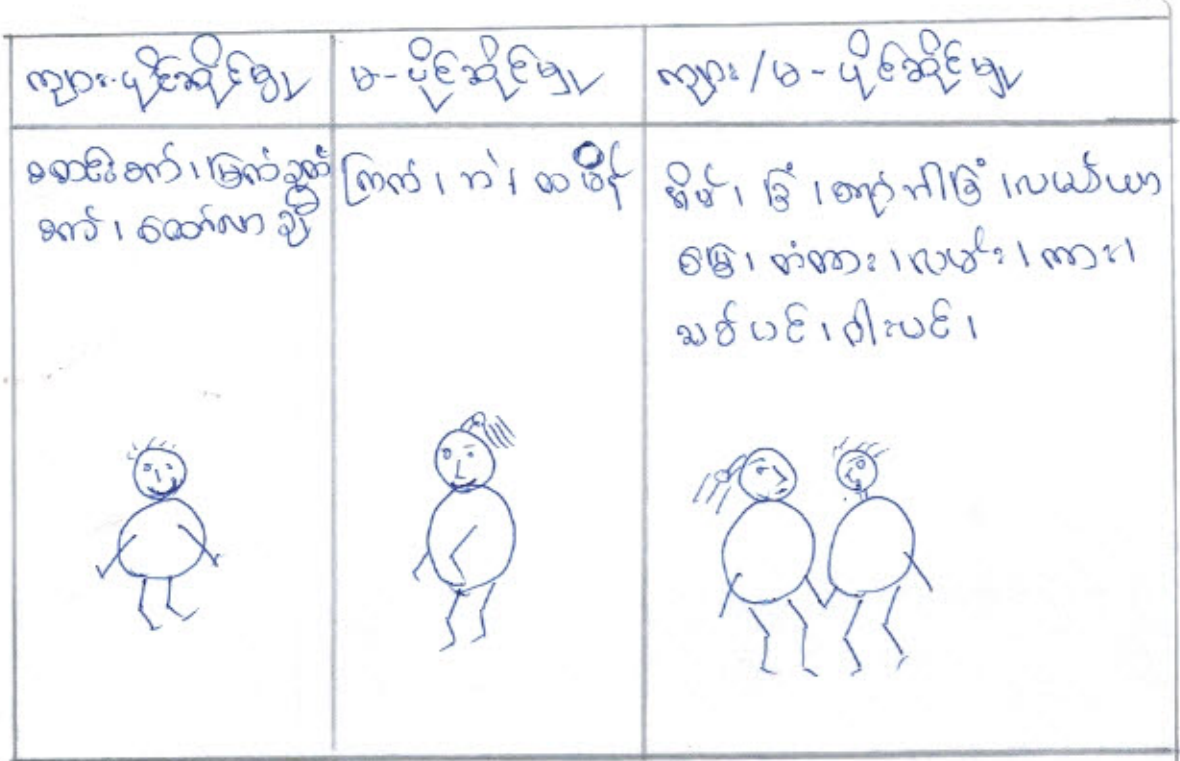 ကျား-ပိုင်ဆိုင်မှု
မ-ပိုင်ဆိုင်မှု
ကျား/မ-ပိုင်ဆိုင်မှု
စက်၊ မြက်ခုတ်
စက်၊ ထော်လာဂျီ
ကြက်၊ ဘဲ၊ ထမိန်
အိမ်၊ ခြံ၊ ခြံ၊ လယ်ယာ
မြေ၊ တံတား၊ လမ်း၊ ကား၊
သစ်ပင်၊ ဝါးပင်၊